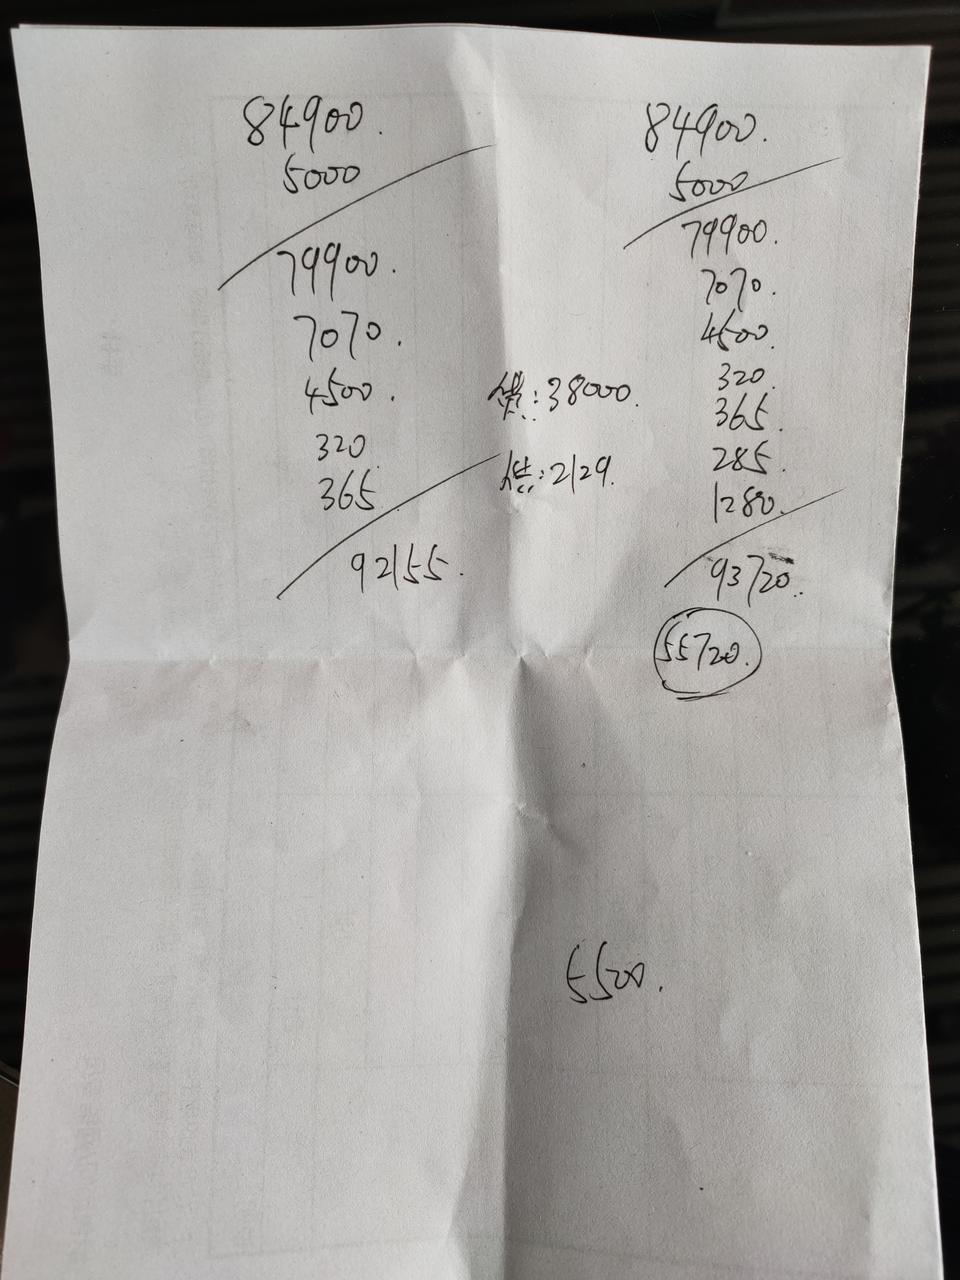 84900.
5000
79900.
7070.
4500.
320
365
92155.
贷:38000.
供:2129.
84900.
5000
79900.
7070.
4500.
320.
365.
285.
1280.
93720.
55720.
5500.